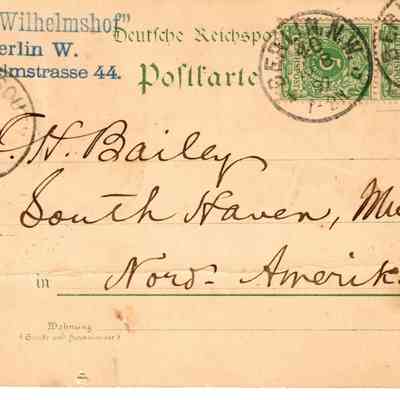 Wilhelmshof"
erlin W.
elmstrasse 44.
Deutsche Reichspos
Postkarte
BERLIN N.W.
. H. Bailey
South Haven, Mi
in Nord-Amerik
Wohnung
(Straße und Hausnummer)